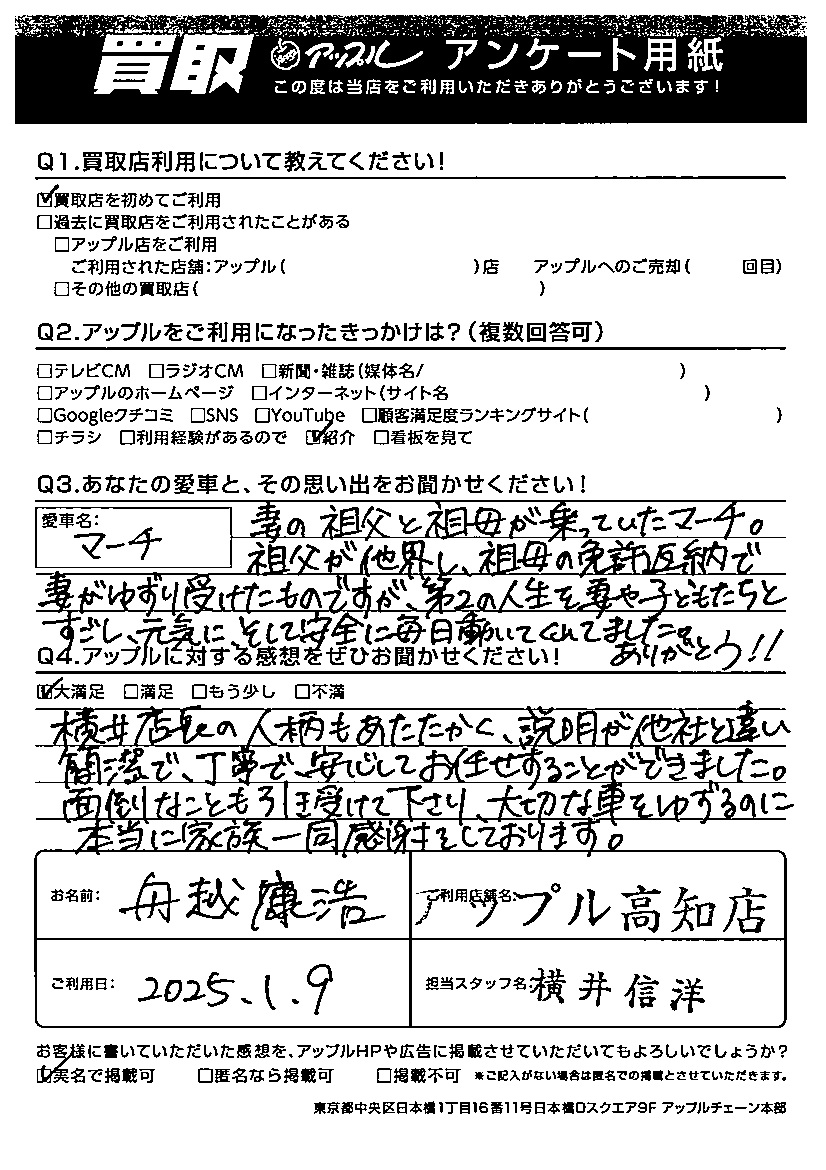 買取 アップル アンケート用紙
この度は当店をご利用いただきありがとうございます!
Q1.買取店利用について教えてください!
☑買取店を初めてご利用
□過去に買取店をご利用されたことがある
□アップル店をご利用
ご利用された店舗:アップル( )店 アップルへのご売却( 回目)
□その他の買取店( )
Q2.アップルをご利用になったきっかけは?(複数回答可)
□テレビCM □ラジオCM □新聞・雑誌(媒体名/ )
□アップルのホームページ □インターネット(サイト名 )
□Googleクチコミ □SNS □YouTube □顧客満足度ランキングサイト( )
□チラシ □利用経験があるので ☑紹介 □看板を見て
Q3.あなたの愛車と、その思い出をお聞かせください!
愛車名:
マーチ
妻の祖父と祖母が乗っていたマーチ。
祖父が他界し、祖母の免許返納で
妻がゆずり受けたものですが、第2の人生を妻や子どもたちと
すごし、元気に、そして安全に毎日動いてくれてました。
ありがとう!!
Q4.アップルに対する感想をぜひお聞かせください!
☑大満足 □満足 □もう少し □不満
横井店長の人柄もあたたかく、説明が他社と違い
簡潔で、丁寧で、安心してお任せすることができました。
面倒なことも引き受けて下さり、大切な車をゆずるのに
本当に家族一同感謝をしております。
お名前: 舟越康浩
ご利用店舗名: アップル高知店
ご利用日: 2025.1.9
担当スタッフ名: 横井信洋
お客様に書いていただいた感想を、アップルHPや広告に掲載させていただいてもよろしいでしょうか?
☑実名で掲載可 □匿名なら掲載可 □掲載不可 ※ご記入がない場合は匿名での掲載とさせていただきます。
東京都中央区日本橋1丁目16番11号日本橋Dスクエア9F アップルチェーン本部